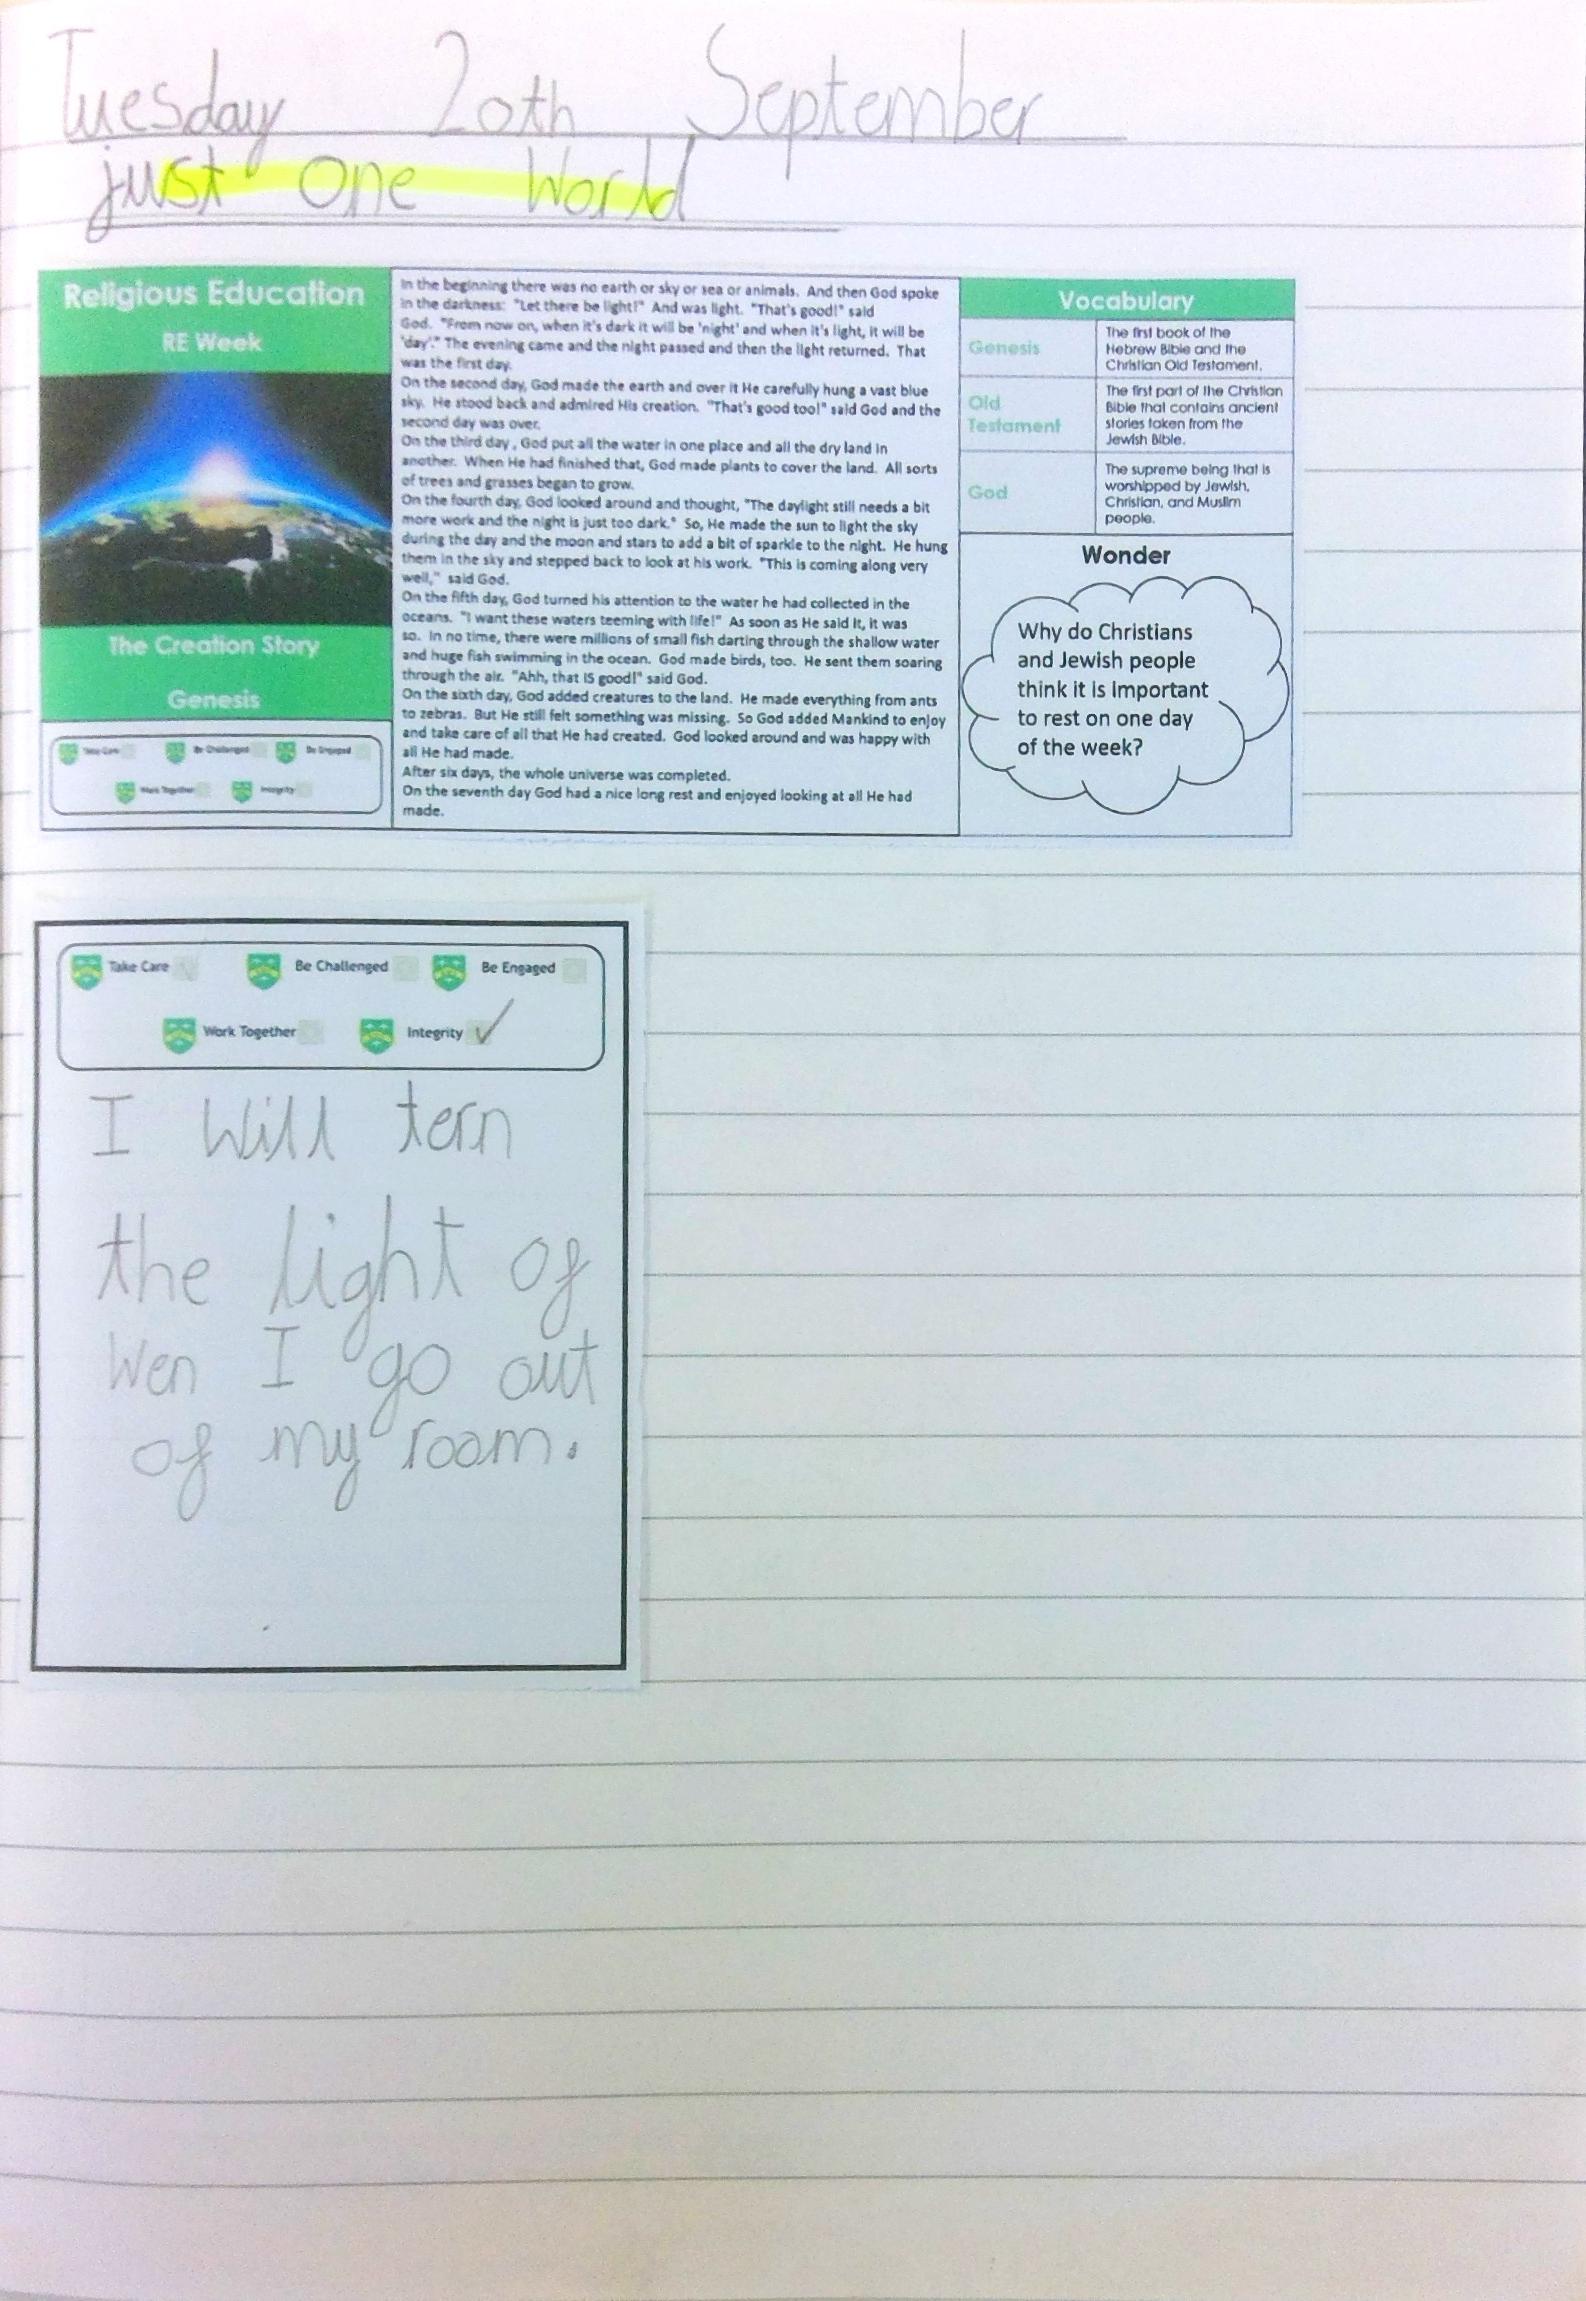 Tuesday 20th September
just one World
Religious Education
RE Week
The Creation Story
Genesis
Take Care Be Challenged Be Engaged
Work Together Integrity
In the beginning there was no earth or sky or sea or animals. And then God spoke
in the darkness: "Let there be light!" And was light. "That's good!" said
God. "From now on, when it's dark it will be 'night' and when it's light, it will be
'day'." The evening came and the night passed and then the light returned. That
was the first day.
On the second day, God made the earth and over it He carefully hung a vast blue
sky. He stood back and admired His creation. "That's good too!" said God and the
second day was over.
On the third day , God put all the water in one place and all the dry land in
another. When He had finished that, God made plants to cover the land. All sorts
of trees and grasses began to grow.
On the fourth day, God looked around and thought, "The daylight still needs a bit
more work and the night is just too dark." So, He made the sun to light the sky
during the day and the moon and stars to add a bit of sparkle to the night. He hung
them in the sky and stepped back to look at his work. "This is coming along very
well," said God.
On the fifth day, God turned his attention to the water he had collected in the
oceans. "I want these waters teeming with life!" As soon as He said it, it was
so. In no time, there were millions of small fish darting through the shallow water
and huge fish swimming in the ocean. God made birds, too. He sent them soaring
through the air. "Ahh, that IS good!" said God.
On the sixth day, God added creatures to the land. He made everything from ants
to zebras. But He still felt something was missing. So God added Mankind to enjoy
and take care of all that He had created. God looked around and was happy with
all He had made.
After six days, the whole universe was completed.
On the seventh day God had a nice long rest and enjoyed looking at all He had
made.
Vocabulary
Genesis
The first book of the
Hebrew Bible and the
Christian Old Testament.
Old
Testament
The first part of the Christian
Bible that contains ancient
stories taken from the
Jewish Bible.
God
The supreme being that is
worshipped by Jewish,
Christian, and Muslim
people.
Wonder
Why do Christians
and Jewish people
think it is important
to rest on one day
of the week?
Take Care Be Challenged Be Engaged
Work Together Integrity ✓
I will tern
the light of
wen I go out
of my room.